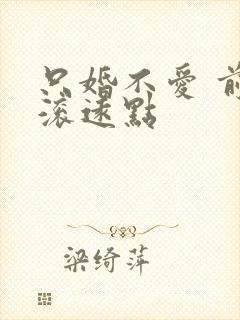 只婚不愛 前
滾遠點
梁綺萍